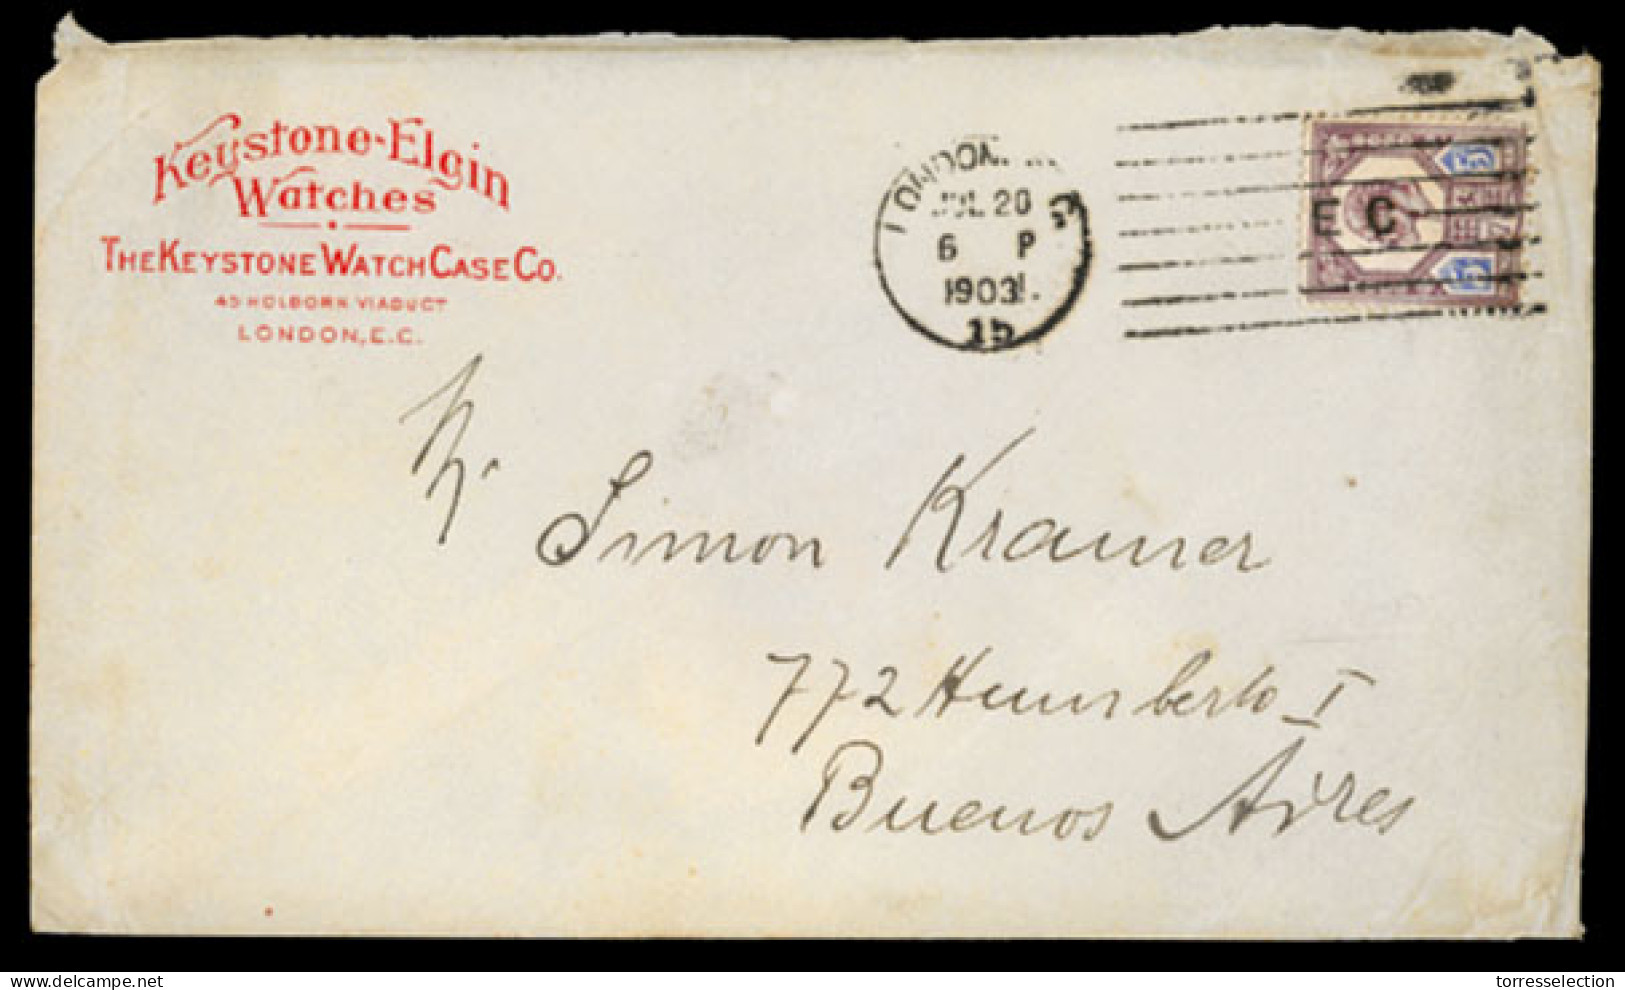 Keystone-Elgin
Watches
THE KEYSTONE WATCH CASE CO.
45 HOLBORN VIADUCT
LONDON, E.C.
LONDON.
JUL 20
6 P
1903
15
E C
Mr
Simon Kramer
772 Humberto I
Buenos Aires
delcampe.net
torresselection